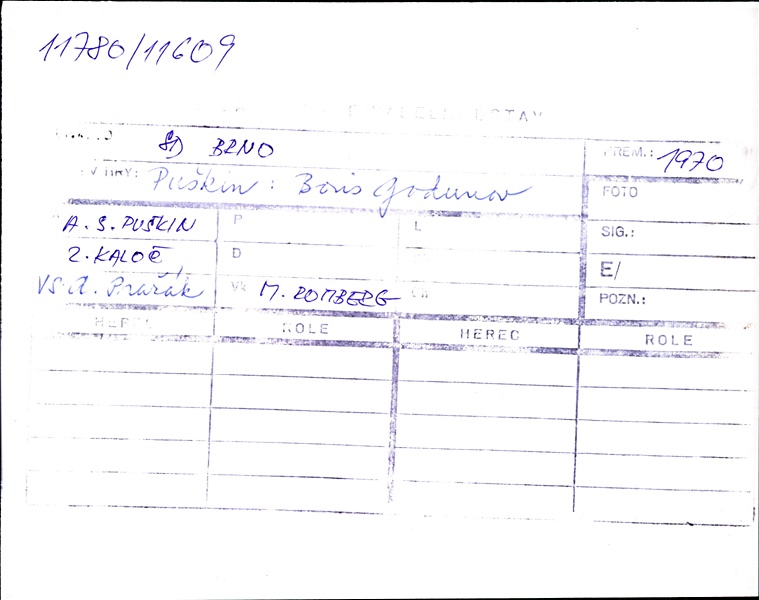 11780/11609
SD BRNO PREM.: 1970
HRY: Puškin: Boris Godunov FOTO
A. S. PUŠKIN P L SIG.:
Z. KALOČ D E/
VS. A. Pražák Vk M. ROMBERG POZN.:
HEREC ROLE HEREC ROLE